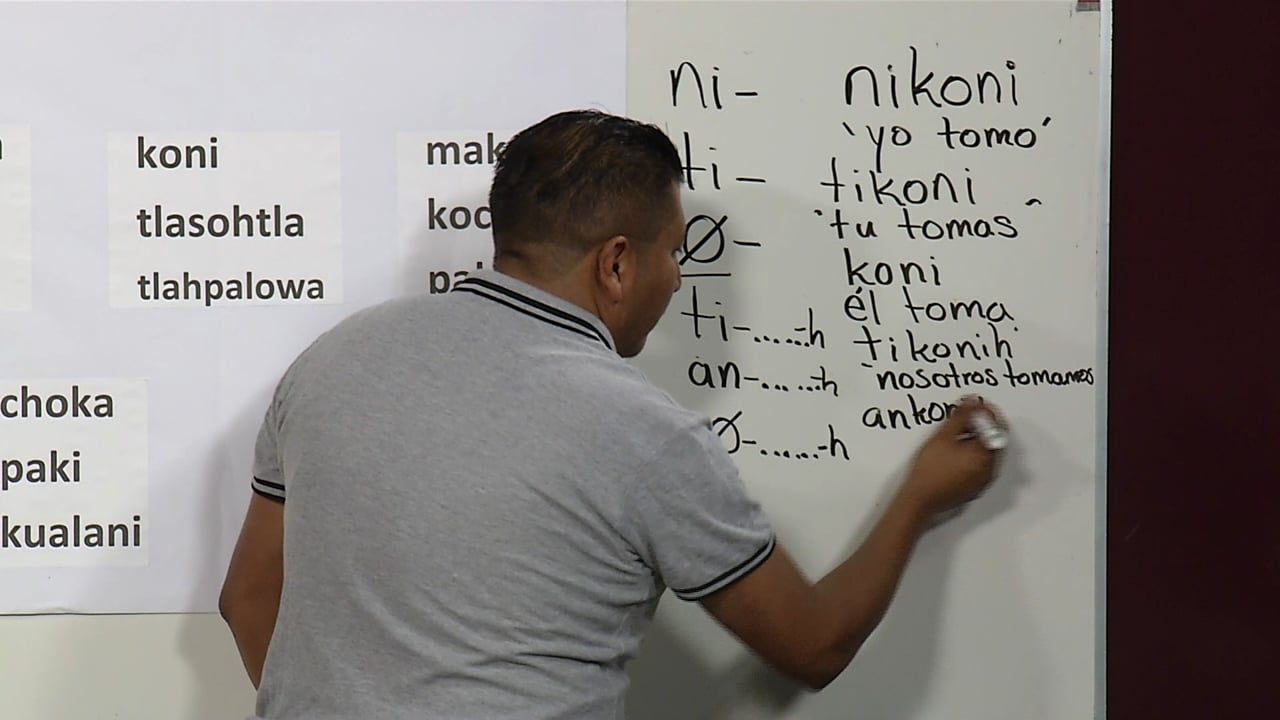 koni
tlasohtla
tlahpalowa
choka
paki
kualani
ni- nikoni
'yo tomo'
ti- tikoni
"tu tomas"
Ø- koni
él toma
ti-......-h tikonih
"nosotros tomamos
an-......-h
Ø-......-h